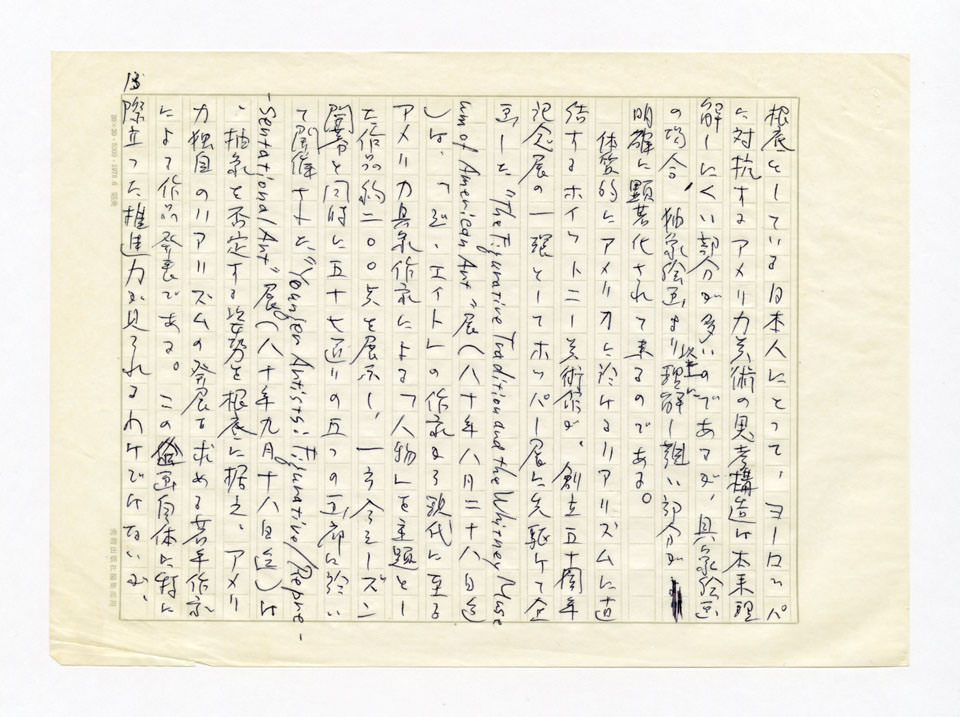 13
根底としている日本人にとって、ヨーロッパ
に対抗するアメリカ美術の思考構造は本来理
解しにくい部分が多いのであるが、具象絵画
の場合、抽象絵画より以上に理解し難い部分が
明確に顕著化されて来るのである。
体質的にアメリカに於けるリアリズムに直
結するホイットニー美術館が、創立五十周年
記念展の一環としてホッパー展に先駆けて企
画した"The Figurative Tradition and the Whitney Muse
um of American Art"展(八十年八月二十八日迄)
しは、「ジ・エイト」の作家から現代に至る
アメリカ具象作家による「人物」を主題とし
た作品約二〇〇点を展示し、一方今シーズン
開幕と同時に五十七通りの五つの画廊に於い
て開催された"Younger Artists: Figurative/Repre-
-sentational Art"展(八十年九月十八日迄)は
、抽象を否定する姿勢を根底に据え、アメリ
カ独自のリアリズムの発展を求める若手作家
によって作品発表である。この企画自体に特に
際立った推進力が見られるわけではないが、
20×20・5000・1978.6